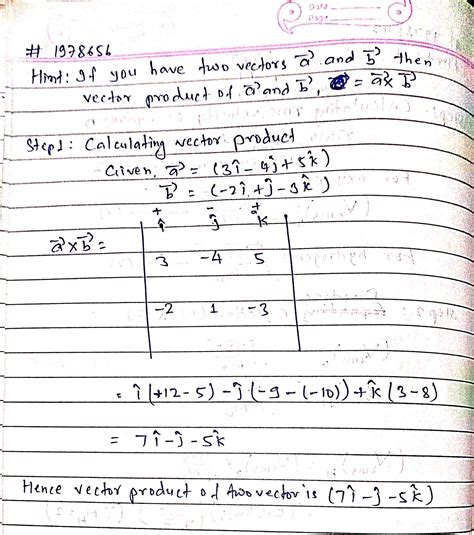 Date
Page
# 1978656
Hint: If you have two vectors a⃗ and b⃗ then
vector product of a⃗ and b⃗, = a⃗ x b⃗
Step1: Calculating vector product
Given, a⃗ = (3î - 4ĵ + 5k̂)
b⃗ = (-2î + ĵ - 3k̂)
+ - +
î ĵ k̂
a⃗ x b⃗ =
3 -4 5
-2 1 -3
= î (+12-5) - ĵ (-9-(-10)) + k̂ (3-8)
= 7î - ĵ - 5k̂
Hence vector product of two vector is (7î - ĵ - 5k̂)